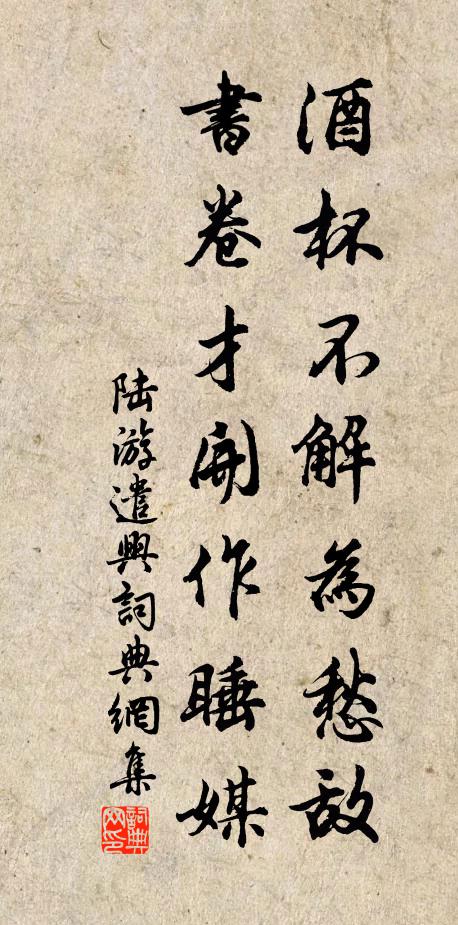 酒杯不解為愁敵
書卷才開作睡媒
陸游遣興詞典網集
詞典网印